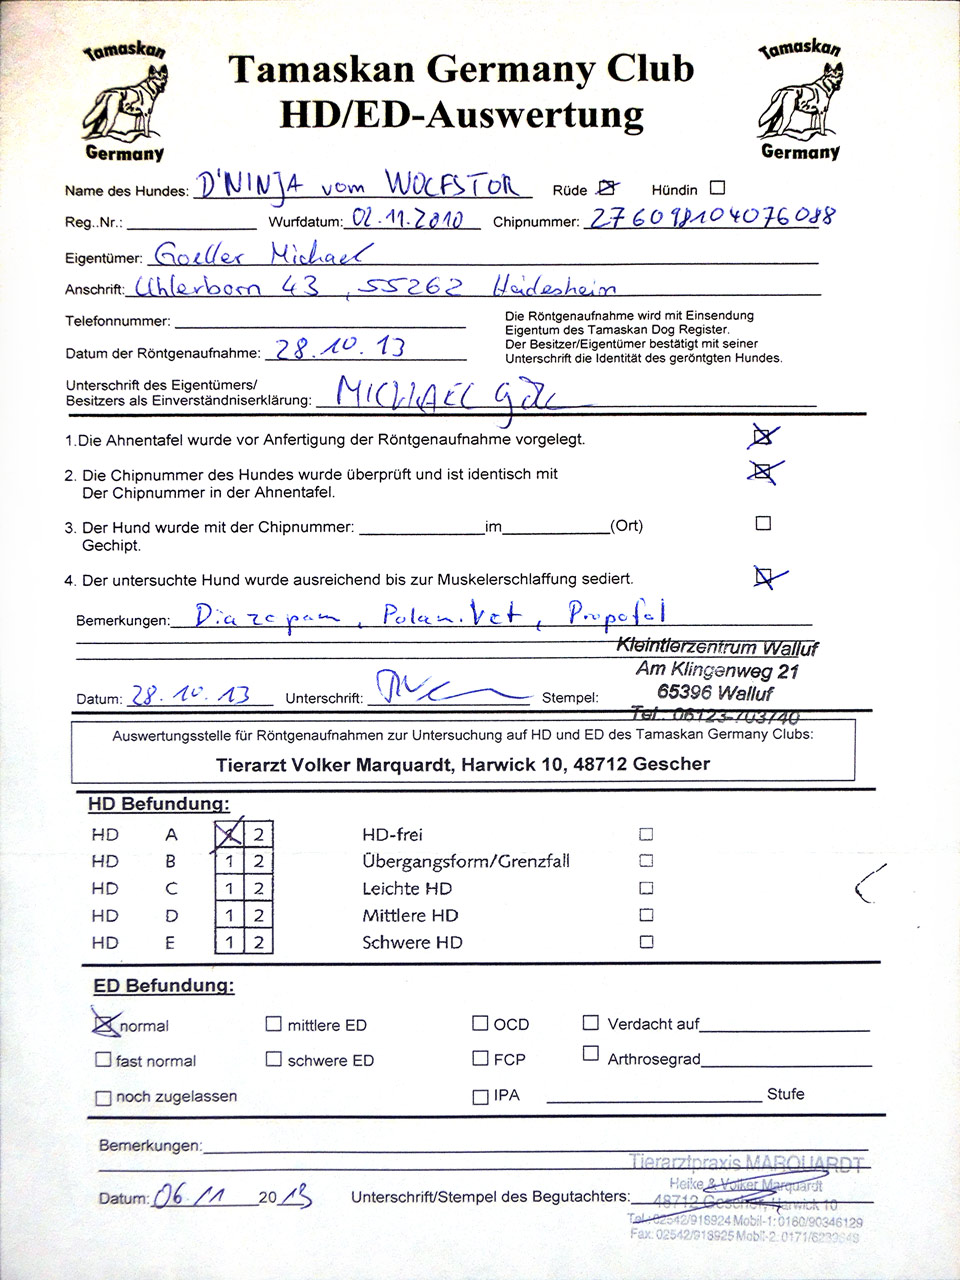 Tamaskan
Germany
Tamaskan Germany Club
HD/ED-Auswertung
Tamaskan
Germany
Name des Hundes: D'NINJA vom WOLFSTOR Rüde ☒ Hündin ☐
Reg..Nr.: Wurfdatum: 02.11.2010 Chipnummer: 276098104076088
Eigentümer: Goeller Michael
Anschrift: Uhlerborn 43, 55262 Heidesheim
Telefonnummer:
Die Röntgenaufnahme wird mit Einsendung
Eigentum des Tamaskan Dog Register.
Der Besitzer/Eigentümer bestätigt mit seiner
Unterschrift die Identität des geröntgten Hundes.
Datum der Röntgenaufnahme: 28.10.13
Unterschrift des Eigentümers/
Besitzers als Einverständniserklärung: MICHAEL
1.Die Ahnentafel wurde vor Anfertigung der Röntgenaufnahme vorgelegt. ☒
2. Die Chipnummer des Hundes wurde überprüft und ist identisch mit ☒
Der Chipnummer in der Ahnentafel.
3. Der Hund wurde mit der Chipnummer: im (Ort) ☐
Gechipt.
4. Der untersuchte Hund wurde ausreichend bis zur Muskelerschlaffung sediert. ☒
Bemerkungen: Diazepam, Polam.Vet, Propofol
Kleintierzentrum Walluf
Am Klingenweg 21
65396 Walluf
Tel.: 06123-703740
Datum: 28.10.13 Unterschrift: Stempel:
Auswertungsstelle für Röntgenaufnahmen zur Untersuchung auf HD und ED des Tamaskan Germany Clubs:
Tierarzt Volker Marquardt, Harwick 10, 48712 Gescher
HD Befundung:
HD A 1 2 HD-frei ☐
HD B 1 2 Übergangsform/Grenzfall ☐
HD C 1 2 Leichte HD ☐
HD D 1 2 Mittlere HD ☐
HD E 1 2 Schwere HD ☐
ED Befundung:
☒ normal ☐ mittlere ED ☐ OCD ☐ Verdacht auf
☐ fast normal ☐ schwere ED ☐ FCP ☐ Arthrosegrad
☐ noch zugelassen ☐ IPA Stufe
Bemerkungen:
Tierarztpraxis MARQUARDT
Heike & Volker Marquardt
48712 Gescher, Harwick 10
Tel.: 02542/918924 Mobil-1: 0160/90346129
Fax: 02542/918925 Mobil-2: 0171/
Datum: 06.11 2013 Unterschrift/Stempel des Begutachters: